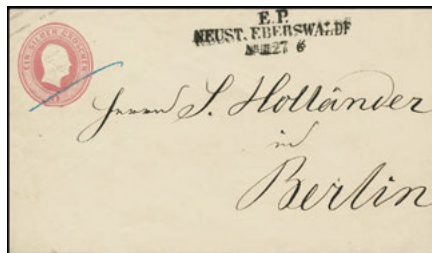 EIN SILBER GROSCHEN
E.P.
NEUST. EBERSWALDE
27 6
Herrn S. Holländer
in
Berlin